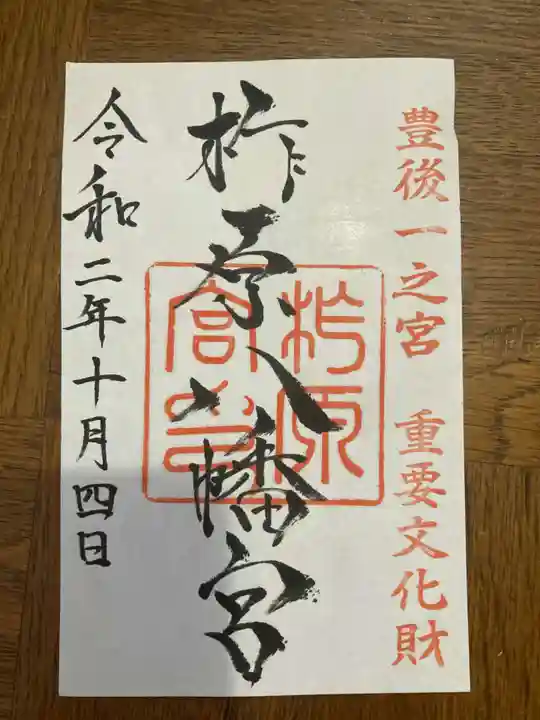 豊後一之宮 重要文化財
柞原八幡宮
柞原宮印
令和二年十月四日